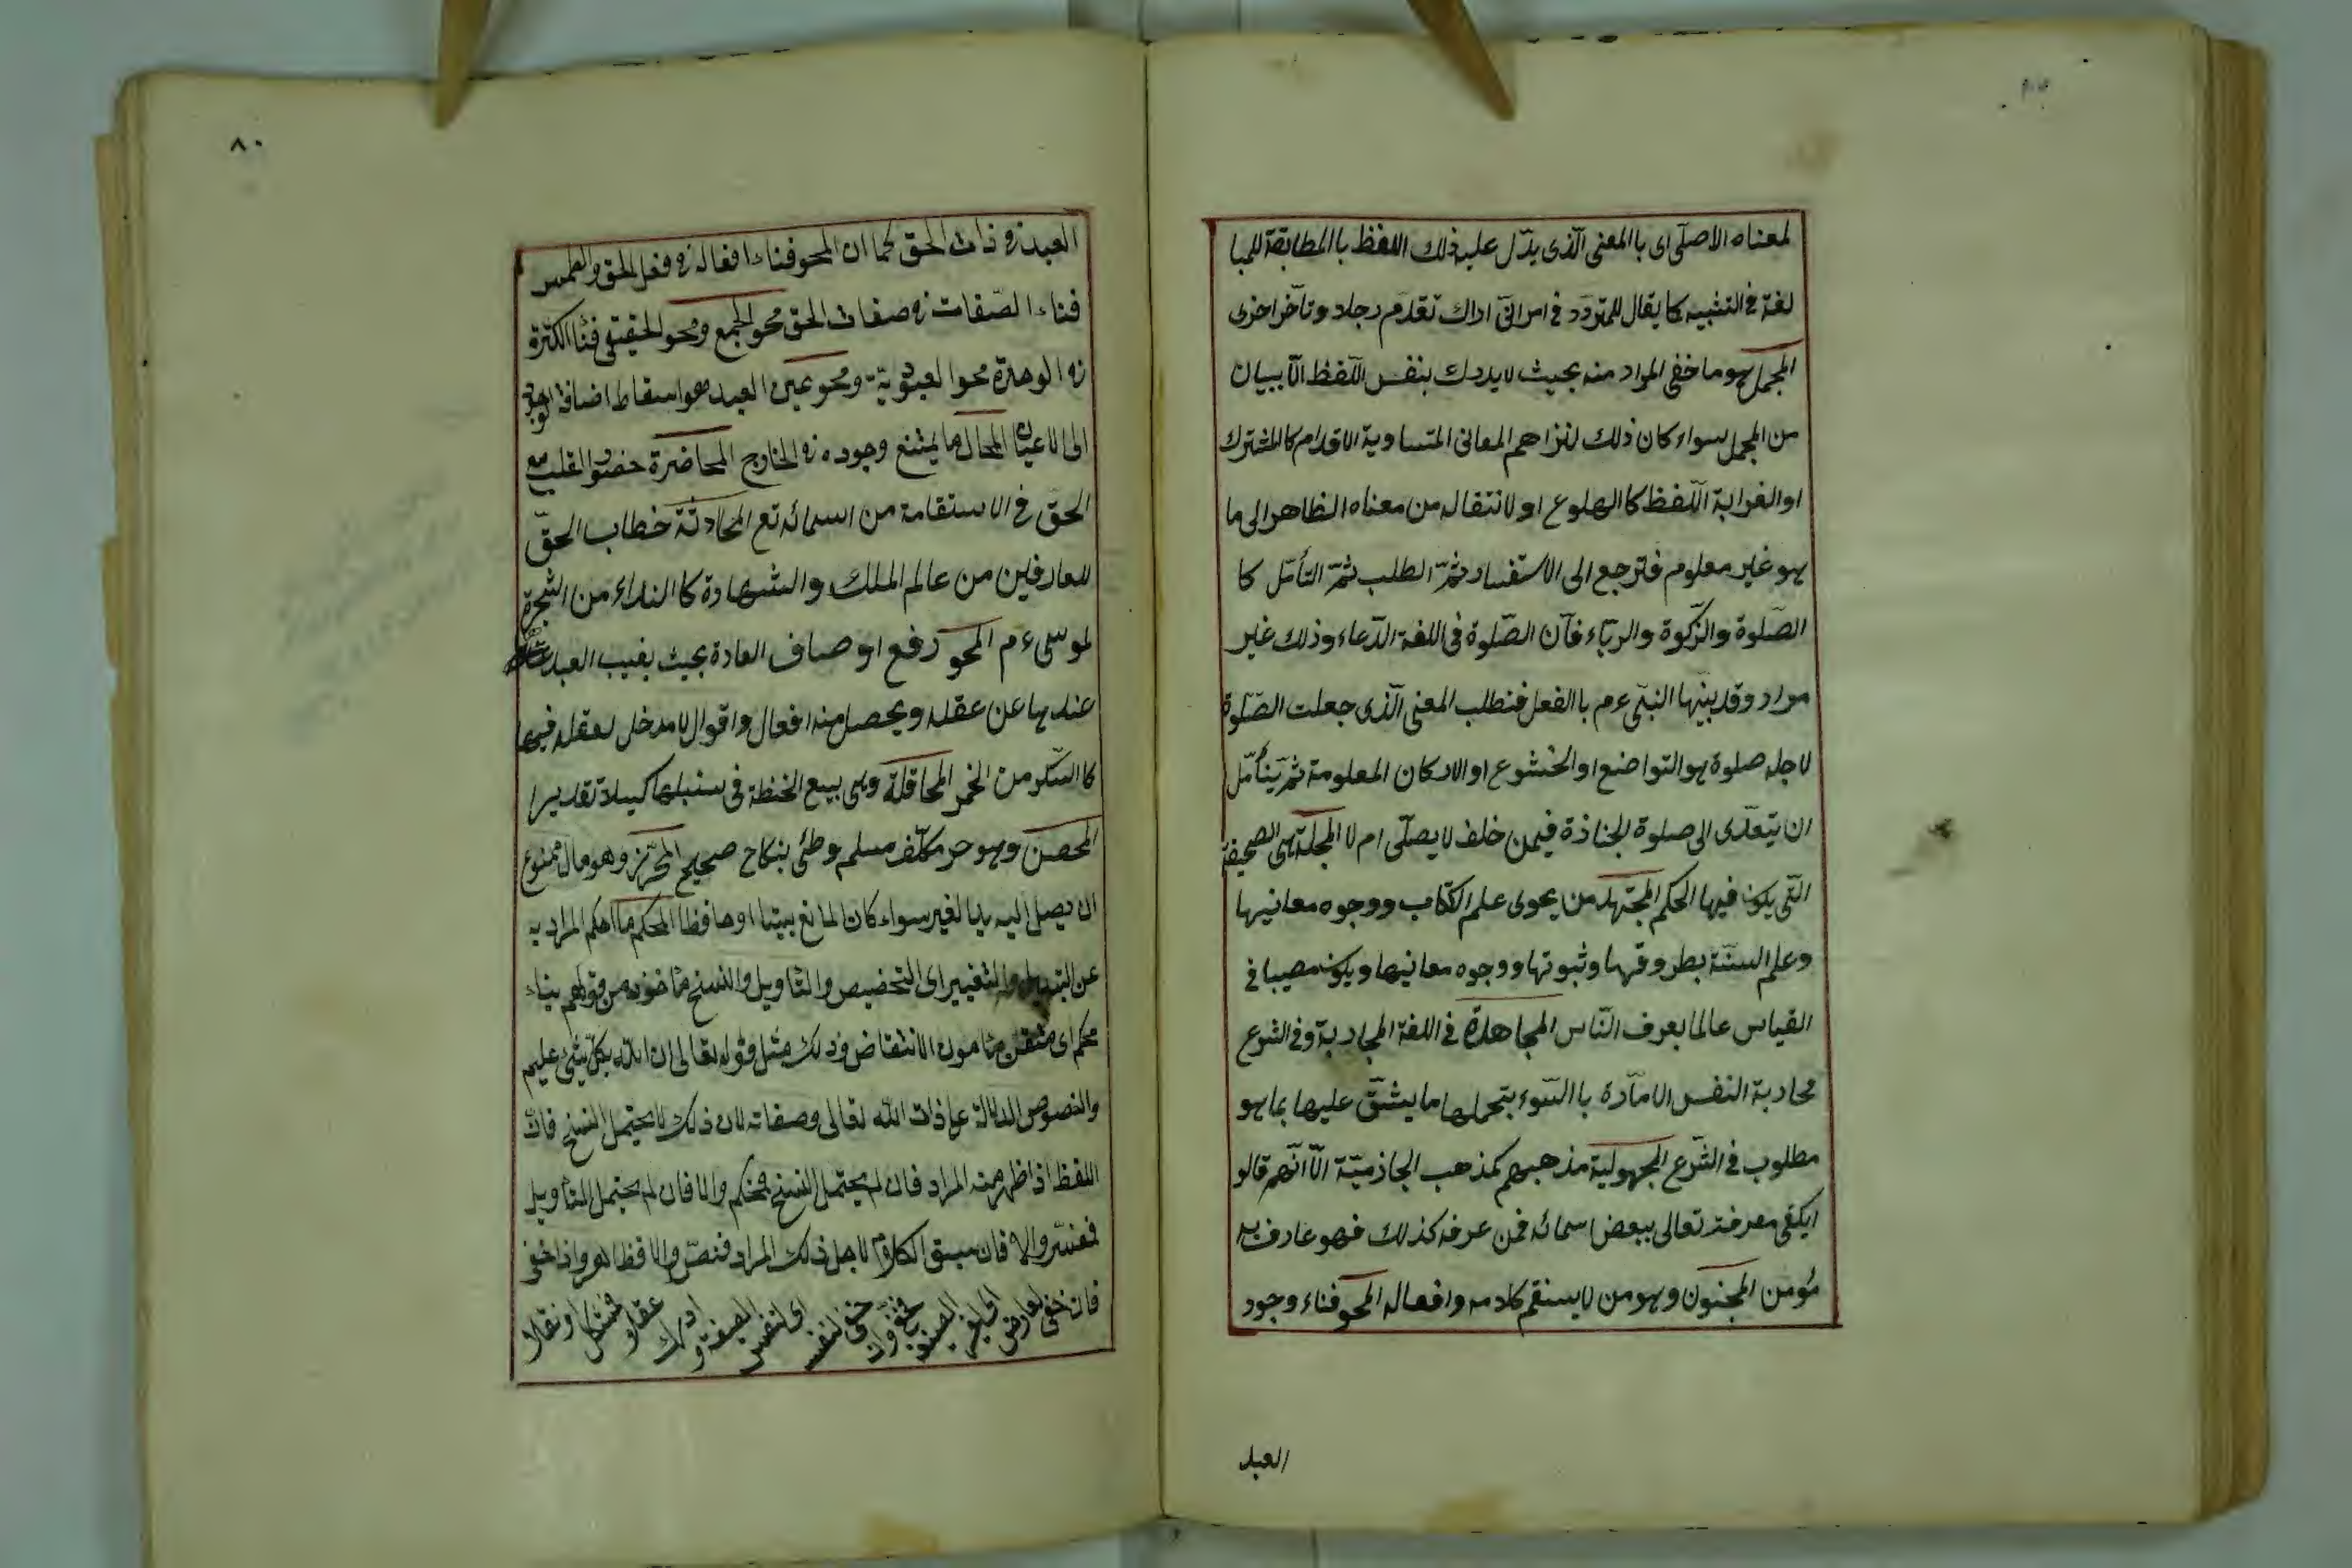 لمعناه الاصلى اى باالمعنى الذى يدل عليه ذلك اللفظ باالمطابقة للمبا
لغة فى التشبيه كا يقال للمتردد فى امر انى اراك تقدم رجلا وتأخر اخرى
المجمل هو ما خفى المراد منه بحيث لا يدرك بنفس اللفظ الا ببيان
من المجمل سواء كان ذلك لتزاحم المعانى المتساوية الاقدام كالمشترك
او الغرابة اللفظ كا الهلوع او لانتقاله من معناه الظاهر الى ما
هو غير معلوم فترجع الى الاستفسار ثم الطلب ثم التأمل كا
الصلوة والزكوة والرباء فان الصلوة فى اللغة الدعاء وذلك غير
مراد وقد بينها النبى عم باالفعل فنطلب المعنى الذى جعلت الصلوة
لاجله صلوة هو التواضع او الخشوع او الاركان المعلومة ثم يتأمل
ان يتعدى الى صلوة الجنازة فيمن خلف لا يصلى ام لا المجلة هى الصحيفة
التى يكون فيها الحكم المجتهد من يحوى علم الكتاب ووجوه معانيها
وعلم السنة بطروقها وثبوتها ووجوه معانيها ويكون مصيبا فى
القياس عالما بعرف الناس المجاهدة فى اللغة المحاربة وفى الشرع
محاربة النفس الامارة باالسوء بتحملها ما يشق عليها بما هو
مطلوب فى الشرع المجهولية مذهبهم كمذهب الجازمية الا انهم قالو
ايكفى معرفته تعالى ببعض اسمائه فمن عرفه كذلك فهو عارف به
مؤمن المجنون وهو من لا يستقم كلامه وافعاله المحو فناء وجود
العبد
٨٠
العبد فى ذات الحق كما ان المحو فناء افعاله فى فعل الحق والطمس
فناء الصفات فى صفات الحق محو الجمع ومحو الحقيقى فنا الكثرة
فى الوحدة محوا لعبودية ومحو عين العبد هو اسقاط اضافة الوجود
الى الاعيان المحال ما يمتنع وجوده فى الخارج المحاضرة حضور القلب مع
الحق فى الاستقامة من اسمائه تع المحادثة خطاب الحق
للعارفين من عالم الملك والشهادة كا النداء من الشجرة
لموسى عم المحو رفع اوصاف العادة بحيث يغيب العبد
عندها عن عقله ويحصل منه افعال واقوال لا مدخل لعقله فيها
كا السكر من الخمر المحاقلة وهى بيع الحنطة فى سنبلها كيلا تقديرا
المحصن وهو حر مكلف مسلم وطئ بنكاح صحيح المحرز وهو مال ممنوع
ان يصل اليه يد الغير سواء كان المانع بيتا او حافظا المحكم ما احكم المراد به
عن التبديل والتغيير اى التخصيص والتأويل والنسخ مأخوذ من قولهم بناء
محكم اى متقن مأمون الانتقاض وذلك مثل قوله تعالى ان الله بكل شئ عليم
والنصوص الدالة على ذات الله تعالى وصفاته لان ذلك لا يحتمل النسخ فان
اللفظ اذا ظهر منه المراد فان لم يحتمل النسخ فمحكم والا فان لم يحتمل التأويل
فمفسر والا فان سيق الكلام لاجل ذلك المراد فنص والا فظاهر واذا خفى
فان خفى لعارض اى لغير الصيغة فخفى وان خفى لنفسه اى لنفس الصيغة وادرك عقلا فمشكل او نقلا